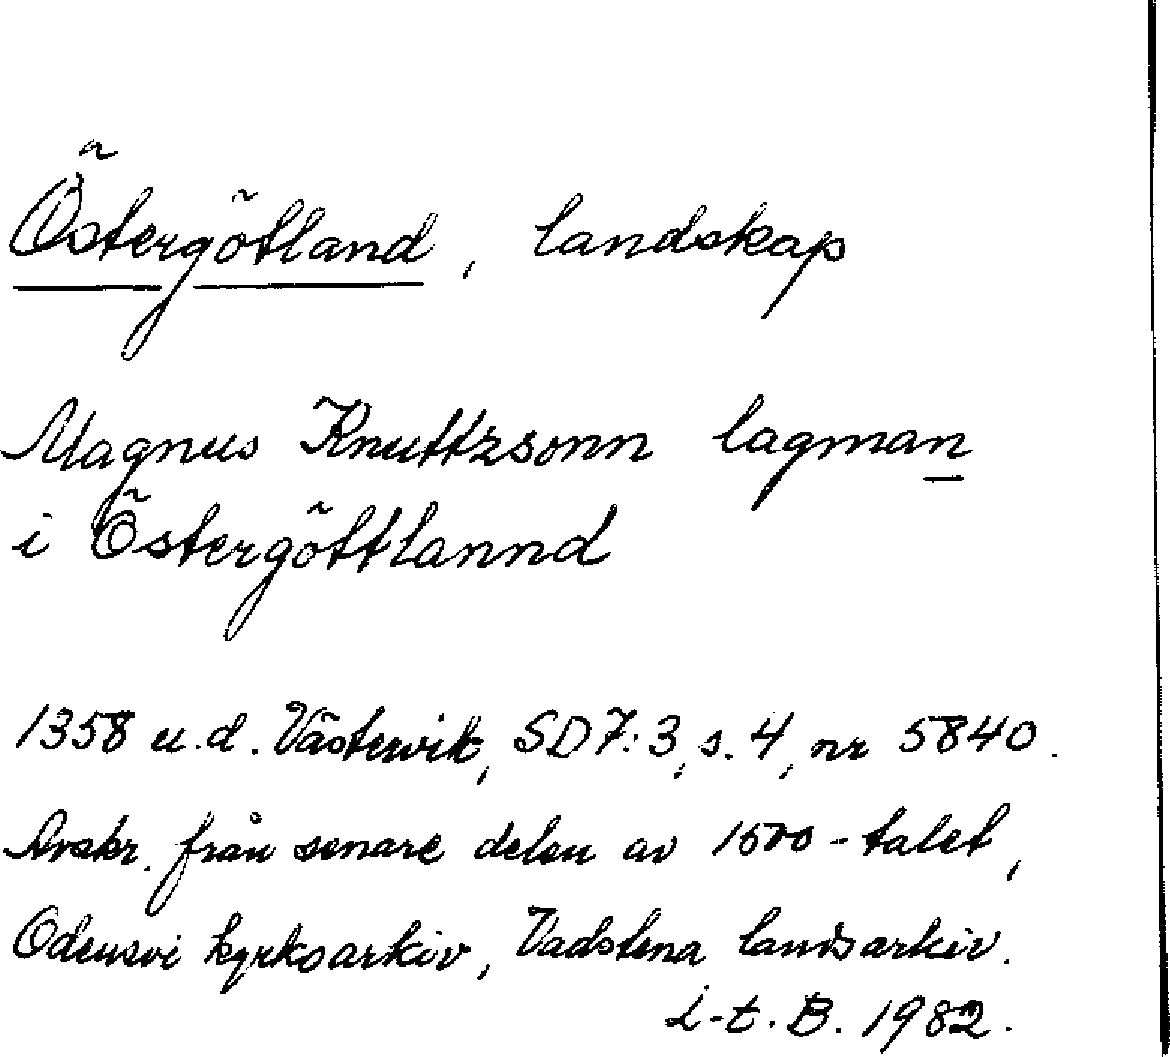 Östergötland, landskap
Magnus Knuttzsonn lagman
i Östergöttlannd
1358 u.d. Västervik, SD7:3, s. 4, nr 5840.
Avskr. från senare delen av 1500-talet,
Odensvi kyrkoarkiv, Vadstena landsarkiv.
i-t. B. 1982.